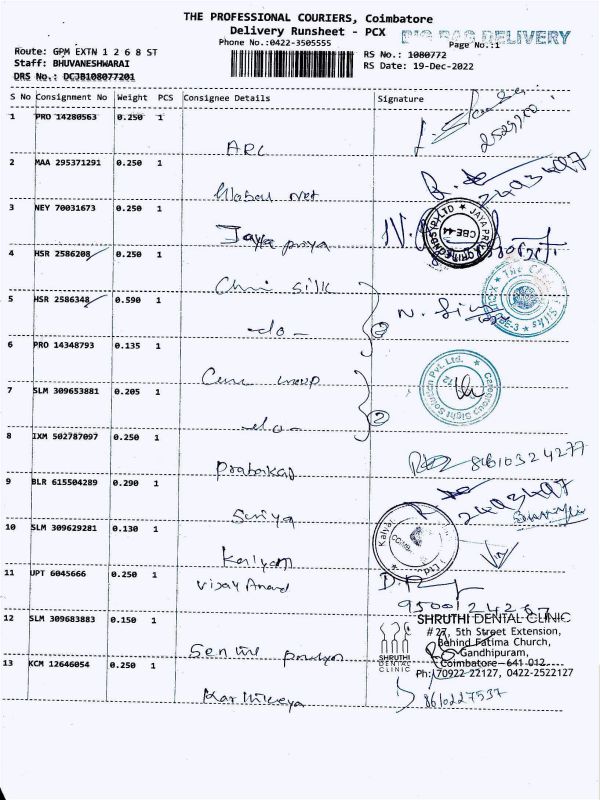 THE PROFESSIONAL COURIERS, Coimbatore
Delivery Runsheet - PCX
BIG BAG DELIVERY
Phone No.:0422-3505555
Page No.:1
Route: GPM EXTN 1 2 6 8 ST
RS No.: 1080772
Staff: BHUVANESHWARAI
RS Date: 19-Dec-2022
DRS No.: DCJB108077201
S No Consignment No Weight PCS Consignee Details Signature
1 PRO 14280563 0.250 1
ARC
2 MAA 295371291 0.250 1
3 NEY 70031673 0.250 1
Jaya priya
CBE-44
4 HSR 2586208 0.250 1
silk
5 HSR 2586348 0.590 1
-do-
2
6 PRO 14348793 0.135 1
7 SLM 309653881 0.205 1
-do-
2
8 IXM 502787097 0.250 1
Prabakar
8610324277
9 BLR 615504289 0.290 1
Suriya
10 SLM 309629281 0.130 1
Kalyan
11 UPT 6045666 0.250 1
Vijay Anand
12 SLM 309683883 0.150 1
SHRUTHI DENTAL CLINIC
#27, 5th Street Extension,
Behind Fatima Church,
Gandhipuram,
Coimbatore - 641 012
Ph: 70922 22127, 0422-2522127
SHRUTHI
DENTAL
CLINIC
13 KCM 12646054 0.250 1
Karthikeya
8610227537